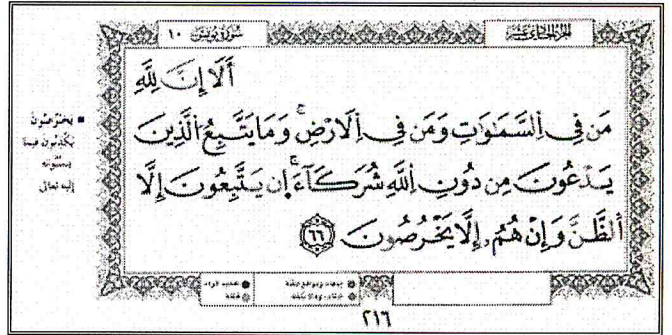 الجزء الحادي عشر
سورة يونس ١٠
أَلَا إِنَّ لِلَّهِ
مَن فِي اِ۬لسَّمَٰوَٰتِ وَمَن فِي اِ۬لَارْضِۖ وَمَا يَتَّبِعُ اُ۬لذِينَ
يَدْعُونَ مِن دُونِ اِ۬للَّهِ شُرَكَآءَۖ اِنْ يَتَّبِعُونَ إِلَّا
اَ۬لظَّنَّ وَإِنْ هُمُۥٓ إِلَّا يَخْرُصُونَ ٦٦
■ يَخْرُصُونَ
يكذبون فيما
ينسبونه
إليه تعالى
٢١٦